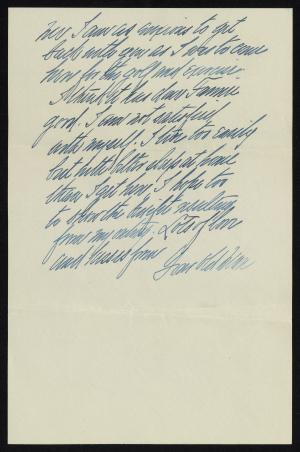 her I am as anxious to get
back with you as I was to come
here for the golf and exercise.
I think it has done Fannie
good. I am not satisfied
with myself. I tire too easily
but
than I get here. I hope too
to show the benefit resulting
from my outing. Lots of love
and kisses from
Your old